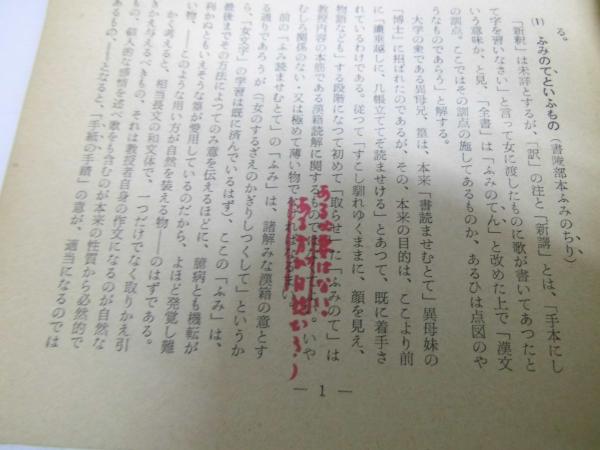 る。
(1) ふみのてといふもの（書陵部本ふみのちり）
「新釈」は未詳とするが、「訳」の注と「新講」とは、「手本にし
て字を習いなさい」と言って女に渡したものに歌が書いてあつたと
いう意味か、と見、「全書」は「ふみのてん」と改めた上で「漢文
の訓点。ここではその訓点の施してあるものか、あるひは点図のや
うなものであらう」と解する。
大学の衆である異母兄、篁は、本来「書読ませむとて」異母妹の
「博士」に招ばれたのであるが、その、本来の目的は、ここより前
に「簾越しに、几帳立ててぞ読ませける」とあつて、既に着手さ
れているわけである。従つて「すこし馴れゆくままに、顔を見え、
物語なども」する段階になつて初めて「取らせ」た「ふみのて」は
教授内容の本筋である漢籍読解に関するもので
むしろ関係のない・又は極めて薄い物で
前の「ふみ読ませむとて」の「ふみ」は、諸解みな漢籍の意とす
る通りであろうが（「女のするざえのかぎりしつくして」というか
ら、「女文字」の学習は既に済んでいるはず）、ここの「ふみ」は、
最後までその方法によつてのみ意を伝えるほどに、臆病とも機転が
利かぬともいえそうな篁が愛用しているのだから、よほど発覚し難
い物、――このような用い方が自然を装える物――のはずである。
かく考えると、相当長文の和文体で、一つだけでなく取りかえ引
きかえ与えるべきもの、それは教授者自身の作文になるのが自然な
もの、個人的な感情を述べ歌をも含むのが本来の性質から必然的で
あるもの、――となると、「手紙の手鑑」の意が、適当になるのでは
― 1 ―